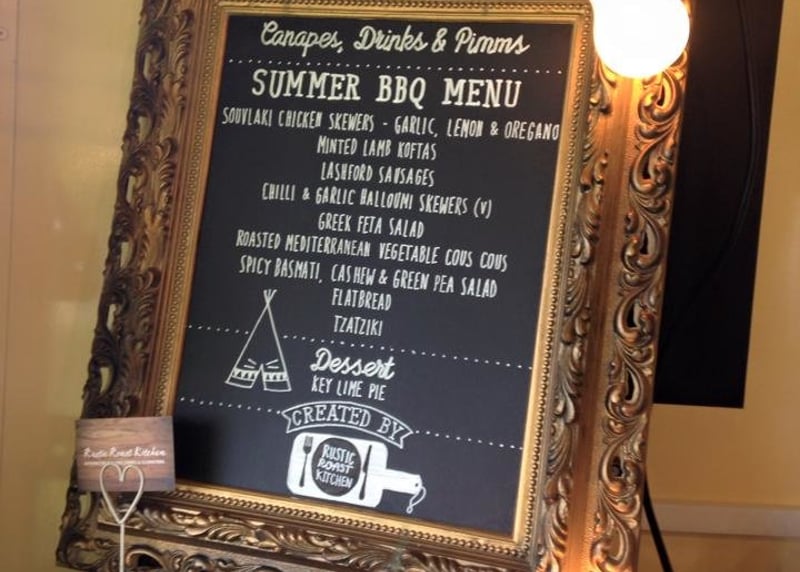 Canapes, Drinks & Pimms
SUMMER BBQ MENU
SOUVLAKI CHICKEN SKEWERS - GARLIC, LEMON & OREGANO
MINTED LAMB KOFTAS
LASHFORD SAUSAGES
CHILLI & GARLIC HALLOUMI SKEWERS (V)
GREEK FETA SALAD
ROASTED MEDITERRANEAN VEGETABLE COUS COUS
SPICY BASMATI, CASHEW & GREEN PEA SALAD
FLATBREAD
TZATZIKI
Dessert
KEY LIME PIE
CREATED BY
RUSTIC
ROAST
KITCHEN
Rustic Roast Kitchen